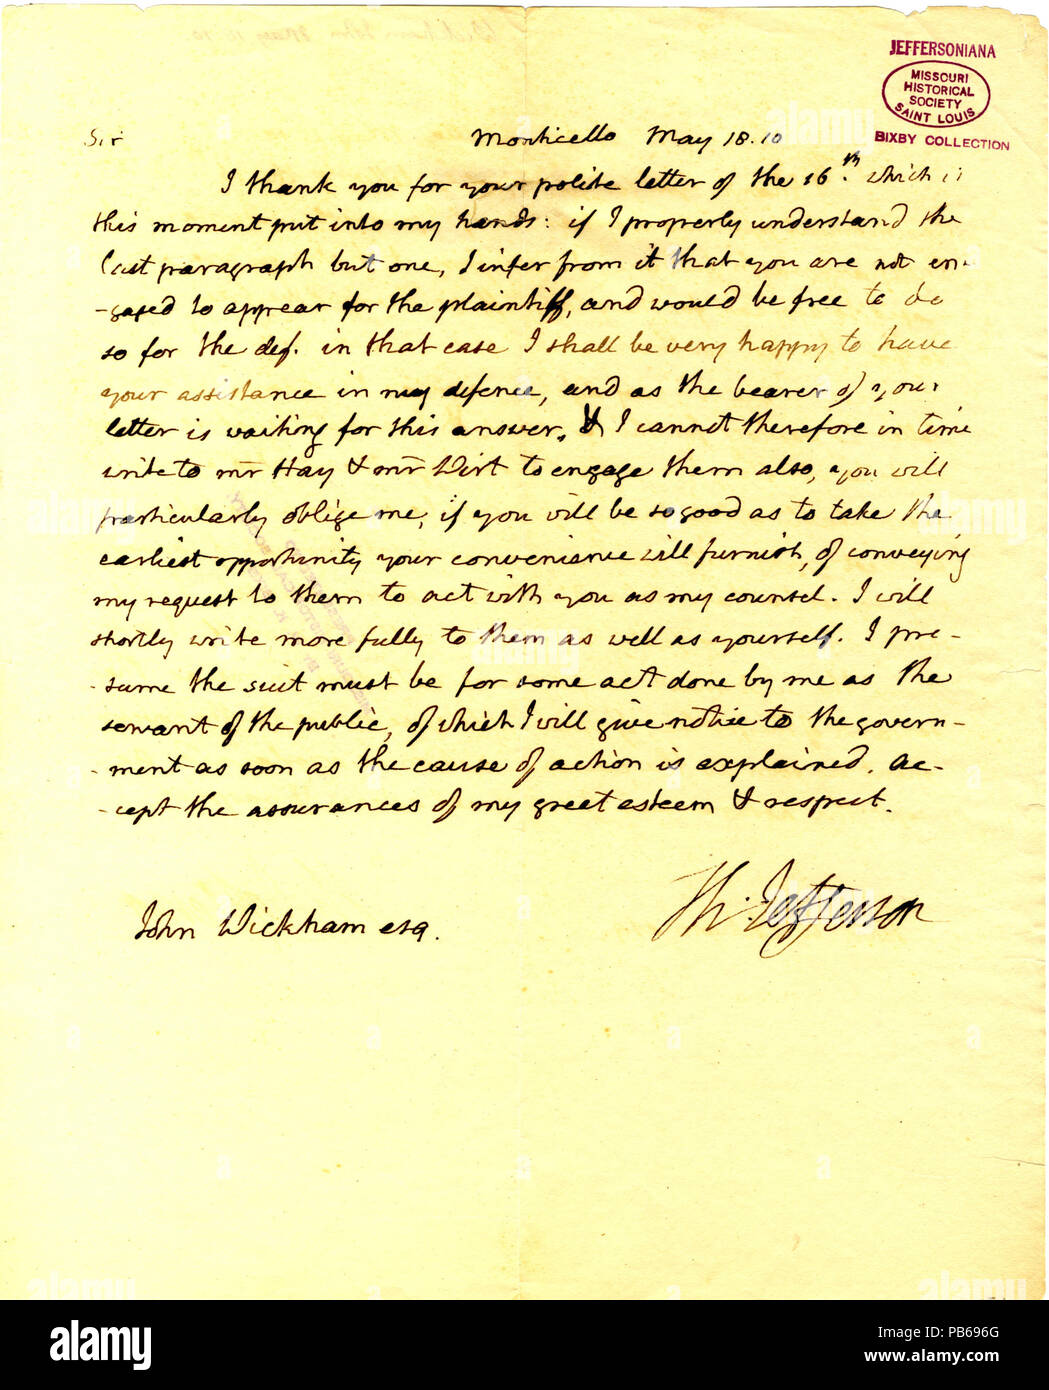 JEFFERSONIANA
MISSOURI
HISTORICAL
SOCIETY
SAINT LOUIS
BIXBY COLLECTION
Sir Monticello May 18. 10
I thank you for your polite letter of the 16th. which is
this moment put into my hands: if I properly understand the
last paragraph but one, I infer from it that you are not en-
-gaged to appear for the plaintiff, and would be free to do
so for the def. in that case I shall be very happy to have
your assistance in my defence, and as the bearer of your
letter is waiting for this answer, & I cannot therefore in time
write to mr Hay & mr Wirt to engage them also, you will
particularly oblige me, if you will be so good as to take the
earliest opportunity your convenience will furnish, of conveying
my request to them to act with you as my counsel. I will
shortly write more fully to them as well as yourself. I pre-
-sume the suit must be for some act done by me as the
servant of the public, of which I will give notice to the govern-
-ment as soon as the cause of action is explained. Ac-
-cept the assurances of my great esteem & respect.
Th: Jefferson
John Wickham esq.
alamy
Image ID: PB696G
www.alamy.com